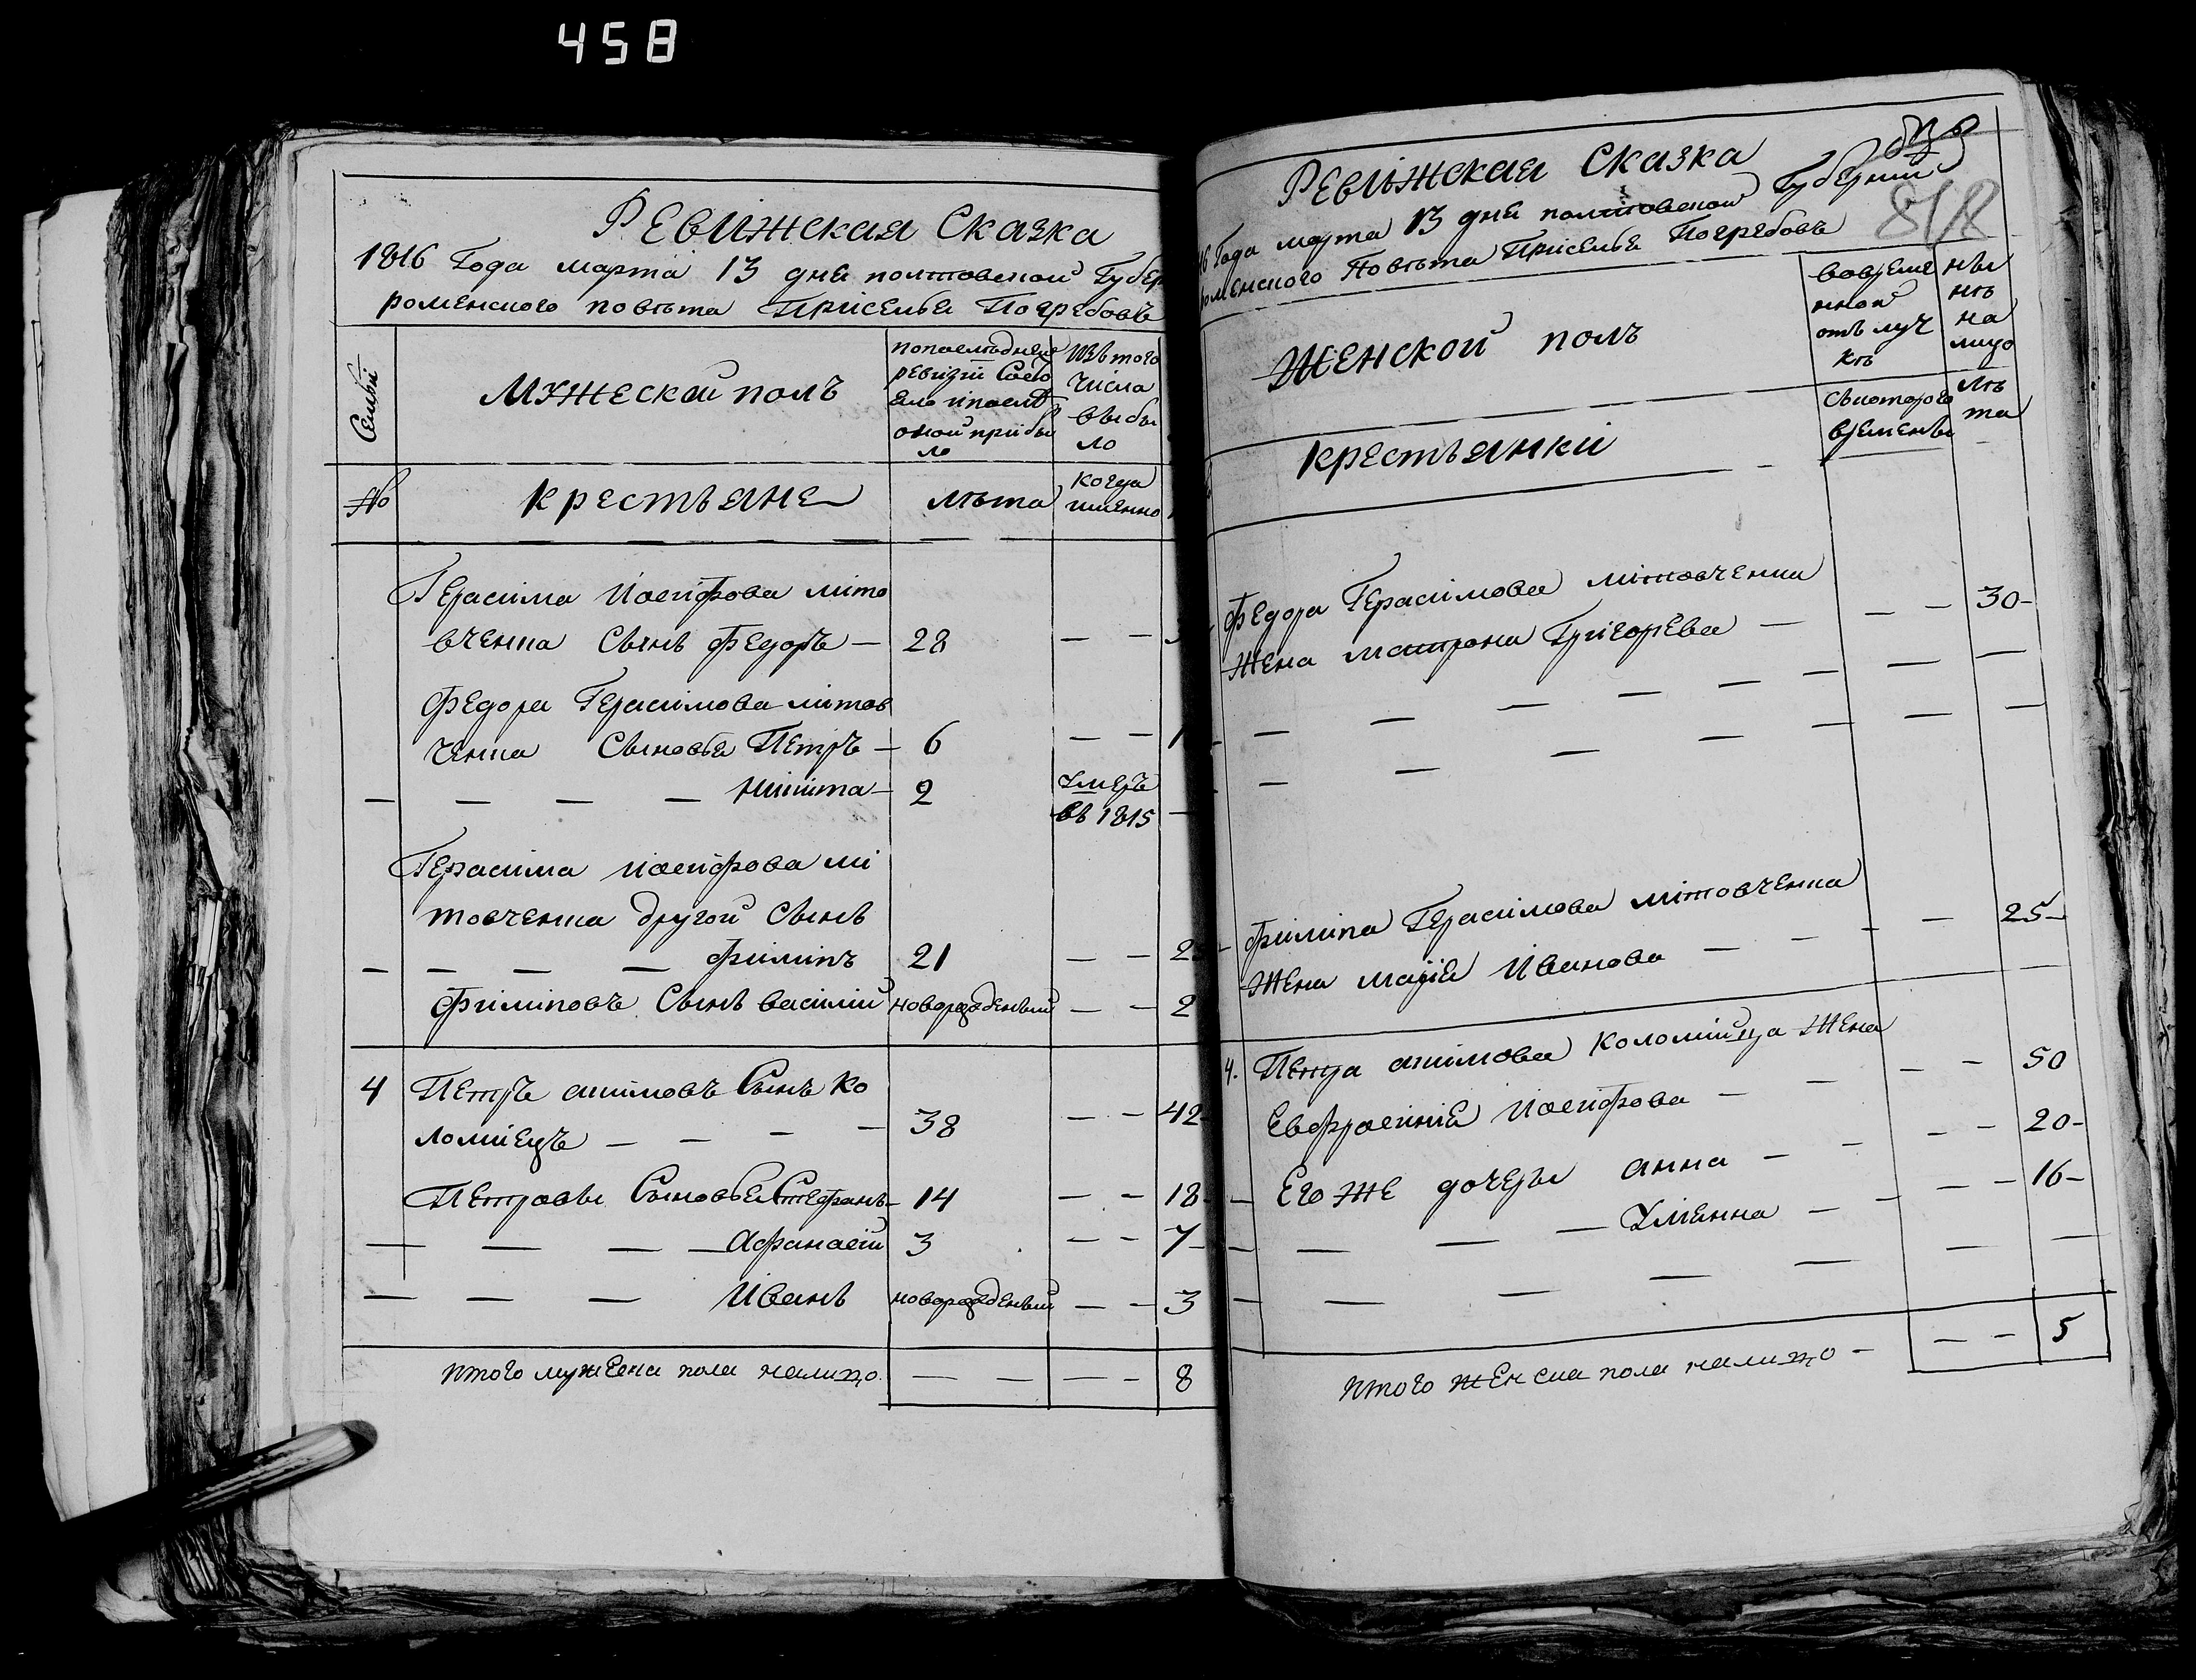 458
Ревижская Сказка
1816 Года марта 13 дня полтовской Губер
роменского повѣта Приселье Погребовъ
Семьи
Мужеской полъ
попоследнеи
ревизіи Состо
яло ипослѣ
оной прибы
ло
Изъ того
числа
выбы
ло
№
крестьяне
лѣта
когда
имѣнно
Герасима Иосифова міто
вченка Сынъ Федоръ — 28 — — 3
Федора Герасимова мітов
ченка Сыновья Петръ — 6 — — 1
— — — — Никита — 2 умеръ
въ 1815 —
Герасима иосифова мі
товченка другой Сынъ
— — — — Филипъ 21 — — 2
Филиповъ Сынъ василій новорожденный — — 2
4 Петръ акимовъ Сынъ Ко
ломиецъ — — — — 38 — — 42
Петровы Сыновья Стефанъ — 14 — — 18
— — — — Афанасій 3 — — 7
— — — Иванъ новорожденный — — 3
Итого мужеска пола налицо — — — — 8
Ревижская Сказка
818
16 Года марта 13 дня полтовской Губерніи
роменского Повѣта Приселья Погребовъ
Женской полъ
вовреме
нной
отъ луч
кѣ
ны
нѣ
на
лицо
крестьянки
Съкоторого
времены
лѣ
та
Федора Герасимова мітовченка
Жена матрона Григорьева — — — 30 —
Филипа Герасимова мітовченка
Жена марія Иванова — — — — 25 —
4. Петра акимова коломийца Жена
Евфросинія Иосифова — — — — 50
Его же дочеры анна — — — — 20 —
— — — Ульянна — — — — 16 —
Итого женска пола налицо — — — 5